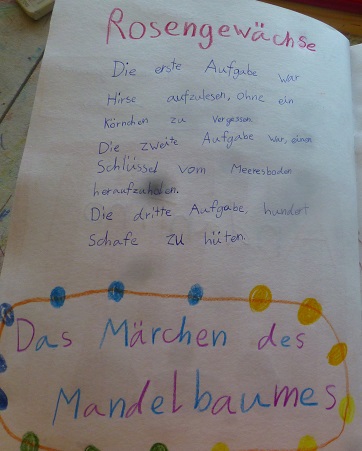 Rosengewächse
Die erste Aufgabe war
Hirse aufzulesen, ohne ein
Körnchen zu vergessen
Die zweite Aufgabe war, einen
Schlüssel vom Meeresboden
heraufzuholen.
Die dritte Aufgabe, hundert
Schafe zu hüten.
Das Märchen des
Mandelbaumes